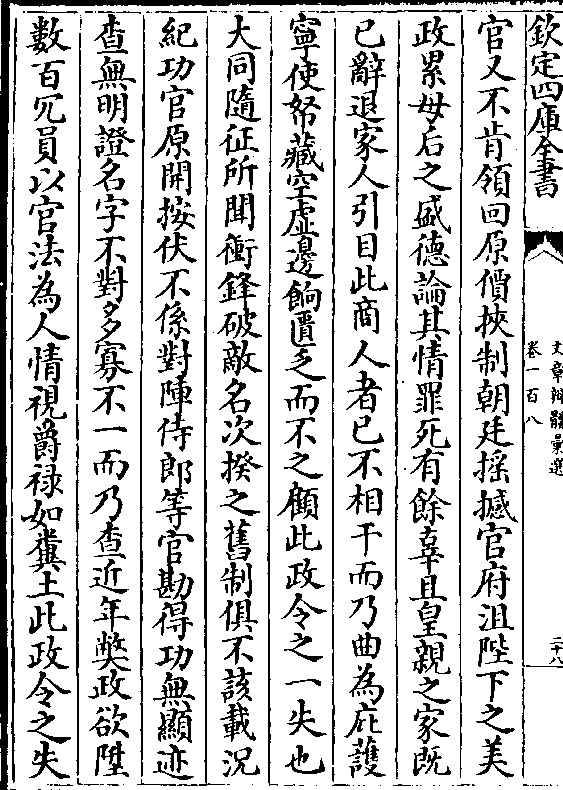 欽定四庫全書
文章辨體彙選
卷一百八
二十八
官又不肯領回原價挾制朝廷揺撼官府沮陛下之美
政累母后之盛德論其情罪死有餘辜且皇親之家既
已辭退家人引目此商人者已不相干而乃曲為庇䕶
寧使帑藏空虚邊餉匱乏而不之顧此政令之一失也
大同隨征所聞衝鋒破敵名次揆之舊制俱不該載況
紀功官原開按伏不係對陣侍郎等官勘得功無顯迹
查無明證名字不對多寡不一而乃查近年獘政欲陞
數百冗員以官法為人情視爵禄如糞土此政令之失